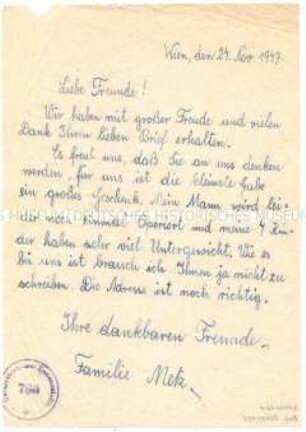 Wien, den 24. Nov. 1947.
Liebe Freunde!
Wir haben mit großer Freude und vielen
Dank Ihren lieben Brief erhalten.
Es freut uns, daß Sie an uns denken
werden. Für uns ist die kleinste Gabe
ein großes Geschenk. Mein Mann wird lei-
der noch einmal Operiert und meine 4 Kin-
der haben sehr viel Untergewicht. Wie es
bei uns ist brauch ich Ihnen ja nicht zu
schreiben. Die Adresse ist noch richtig.
Ihre dankbaren Freunde.
Familie Metz.
780